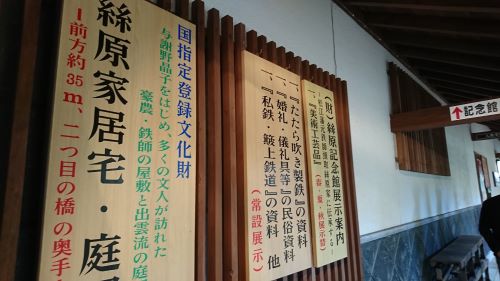 国指定登録文化財
与謝野晶子をはじめ、多くの文人が訪れた
豪農・鉄師の屋敷と出雲流の庭
絲原家居宅・庭
↑前方約35m、二つ目の橋の奥手
(財)絲原記念館展示案内
絲原家に伝承する
一、『美術工芸品』
(春・夏・秋展示替)
一、『たたら吹き製鉄』の資料
一、『婚礼・儀礼具等』の民俗資料
一、『私鉄・簸上鉄道』の資料 他
(常設展示)
↑記念館